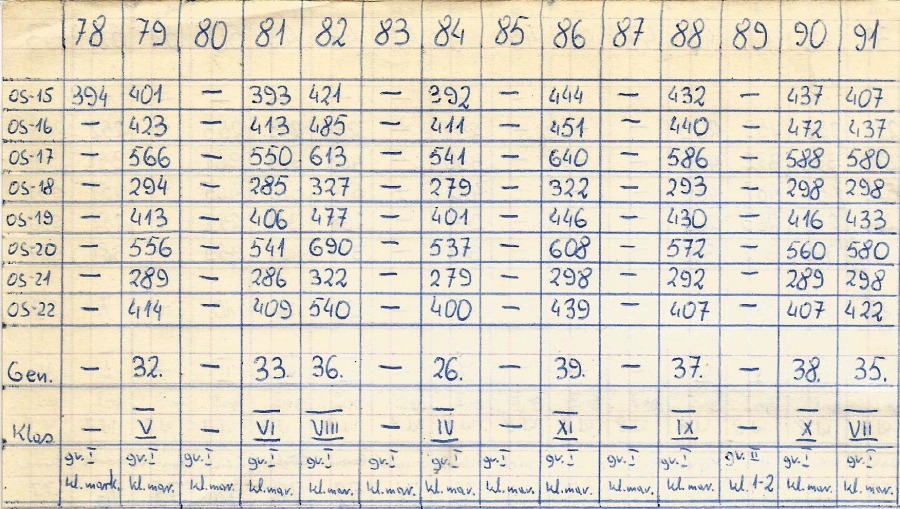 78 79 80 81 82 83 84 85 86 87 88 89 90 91
OS-15 394 401 — 393 421 — 392 — 444 — 432 — 437 407
OS-16 — 423 — 413 485 — 411 — 451 — 440 — 472 437
OS-17 — 566 — 550 613 — 541 — 640 — 586 — 588 580
OS-18 — 294 — 285 327 — 279 — 322 — 293 — 298 298
OS-19 — 413 — 406 477 — 401 — 446 — 430 — 416 433
OS-20 — 556 — 541 690 — 537 — 608 — 572 — 560 580
OS-21 — 289 — 286 322 — 279 — 298 — 292 — 289 298
OS-22 — 414 — 409 540 — 400 — 439 — 407 — 407 422
Gen. — 32. — 33. 36. — 26. — 39. — 37. — 38. 35.
Klas. — V — VI VIII — IV — XI — IX — X VII
gr.I gr.I gr.I gr.I gr.I gr.I gr.I gr.I gr.I gr.I gr.I gr.II gr.I gr.I
kl.mark. kl.mar. kl.mar. kl.mar. kl.mar. kl.mar. kl.mar. kl.mar. kl.mar. kl.mar. kl.mar. kl.1-2 kl.mar. kl.mar.